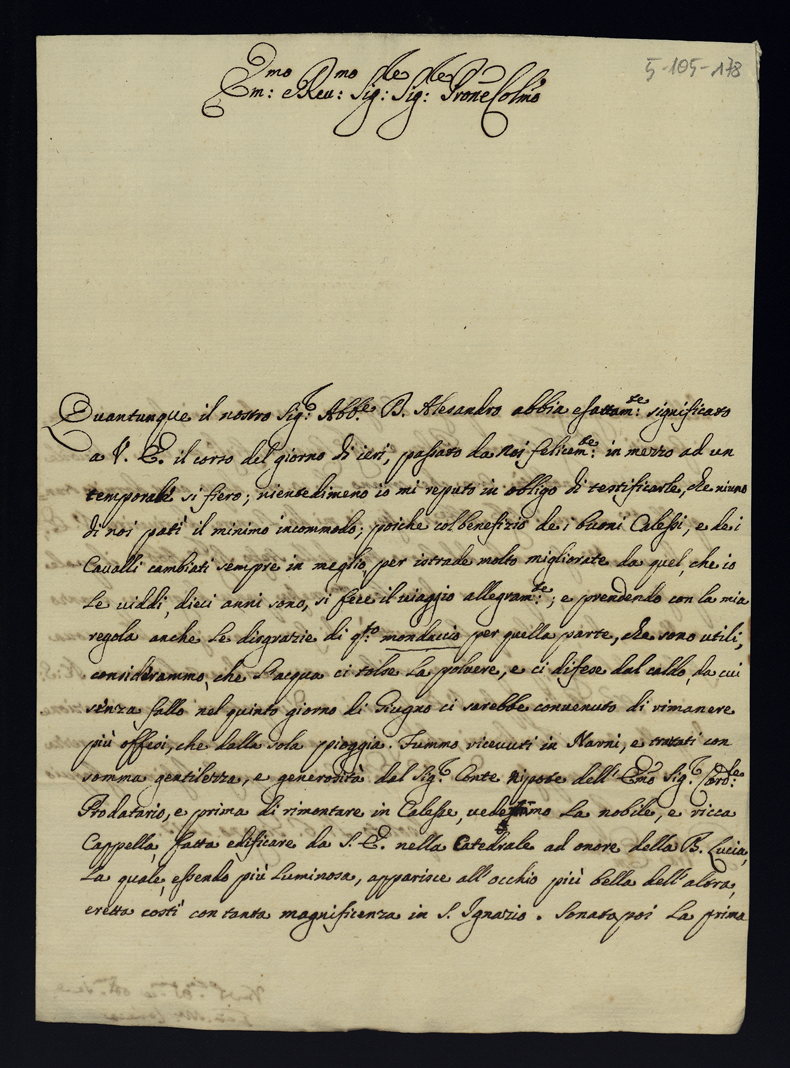 5-105-178
Em:mo e Rev:mo Sig:re Sig:re Prone Colmo
Quantunque il nostro Sig:r Abb:e B. Alesandro abbia esattam:te significato
a V. E. il corso del giorno di ieri, passato da noi felicem:te in mezzo ad un
temporale si fiero; nientedimeno io mi reputo in obligo di testificarle, che niuno
di noi patì il minimo incommodo; poiche col benefizio de i buoni Calessi, e de i
Cavalli cambiati sempre in meglio, per istrade molto migliorate da quel, che io
le viddi, dieci anni sono, si fece il viaggio allegram:te; e prendendo con la mia
regola anche le disgrazie di q:to mondaccio per quella parte, che sono utili,
considerammo, che l'acqua ci tolse la polvere, e ci difese dal caldo, da cui
senza fallo nel quinto giorno di Giugno ci sarebbe convenuto di rimanere
più offesi, che dalla sola pioggia. Fummo ricevuti in Narni, e trattati con
somma gentilezza, e generosità dal Sig:r Conte nipote dell' Emo Sig:r Card:le
Prodatario, e prima di rimontare in Calesse, vedemmo la nobile, e ricca
Cappella, fatta edificare da S. E. nella Catedrale ad onore della B. Lucia,
la quale, essendo più luminosa, apparisce all'occhio più bella dell'altra,
eretta costì con tanta magnificenza in S. Ignazio. Sonata poi la prima